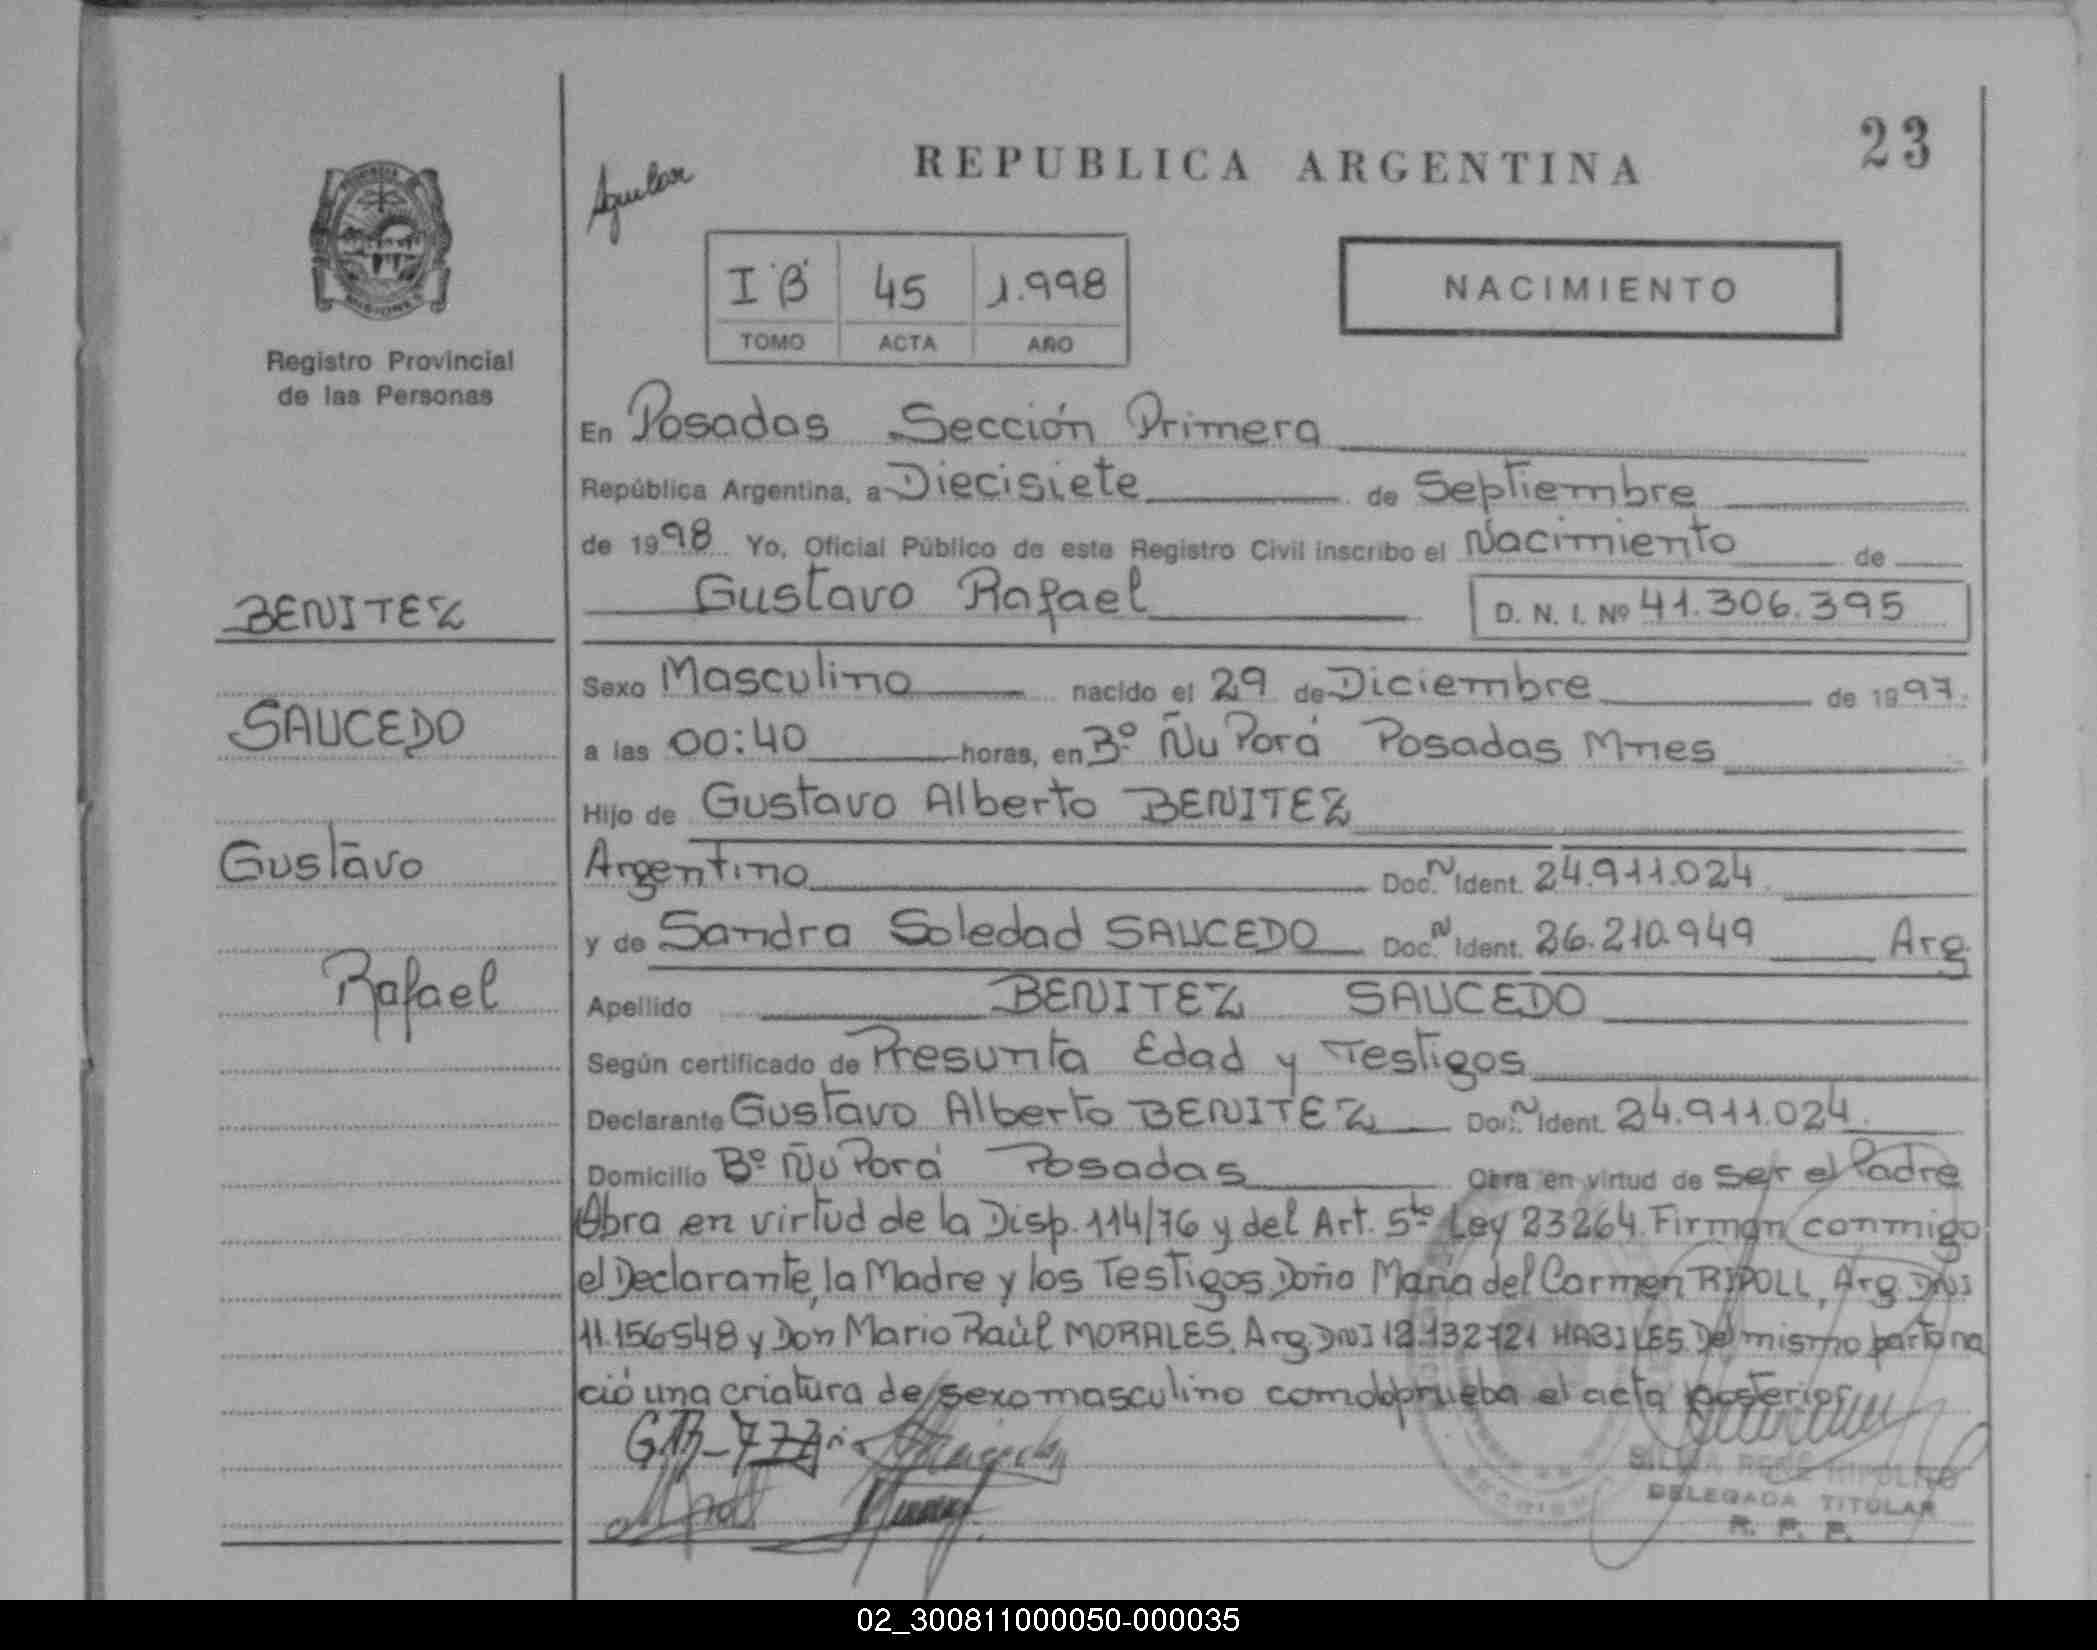 REPUBLICA ARGENTINA
23
Aguilar
I B 45 1.998
TOMO ACTA AÑO
NACIMIENTO
Registro Provincial
de las Personas
BENITEZ
SAUCEDO
Gustavo
Rafael
En Posadas Sección Primera
República Argentina, a Diecisiete de Septiembre
de 1998 Yo, Oficial Público de este Registro Civil inscribo el Nacimiento de
Gustavo Rafael D. N. I. Nº 41.306.395
Sexo Masculino nacido el 29 de Diciembre de 1997.
a las 00:40 horas, en Bº Ñu Porá Posadas Mnes
Hijo de Gustavo Alberto BENITEZ
Argentino Doc. N Ident. 24.911.024
y de Sandra Soledad SAUCEDO Doc. N Ident. 26.210.949 Arg
Apellido BENITEZ SAUCEDO
Según certificado de Presunta Edad y Testigos
Declarante Gustavo Alberto BENITEZ Doc. N Ident. 24.911.024.
Domicilio Bº Ñu Porá Posadas Obra en virtud de ser el Padre
Obra en virtud de la Disp. 114/76 y del Art. 5to Ley 23264. Firman conmigo
el Declarante, la Madre y los Testigos Doña Maria del Carmen RIPOLL, Arg. DNI
11.156548 y Don Mario Raúl MORALES, Arg. DNI 12.132721 HABILES. Del mismo parto na
ció una criatura de sexo masculino como lo prueba el acta posterior
DELEGADA TITULAR
R. P. P.
02_300811000050-000035